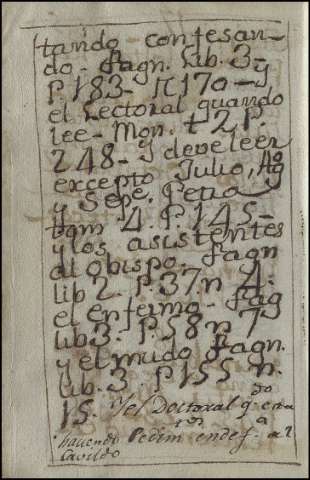 tando - confesan-
do - Fagn. Lib. 3-
P. 183- N 170 - y
el Lectoral quando
lee - Mon. t 2 P.
248 - y deve leer
excepto Julio, Ago
y Sepe. Petra
tom 4. P. 145 -
y los asistentes
al obispo. Fagn
lib 2. P. 37. n 4.
el enfermo - Fag
lib. 3. P. 58 n 7
y el mudo Fagn.
lib. 3. P 155 n.
15. Y el Doctoral qdo
haciendo Pedim en def. a al
Cavildo